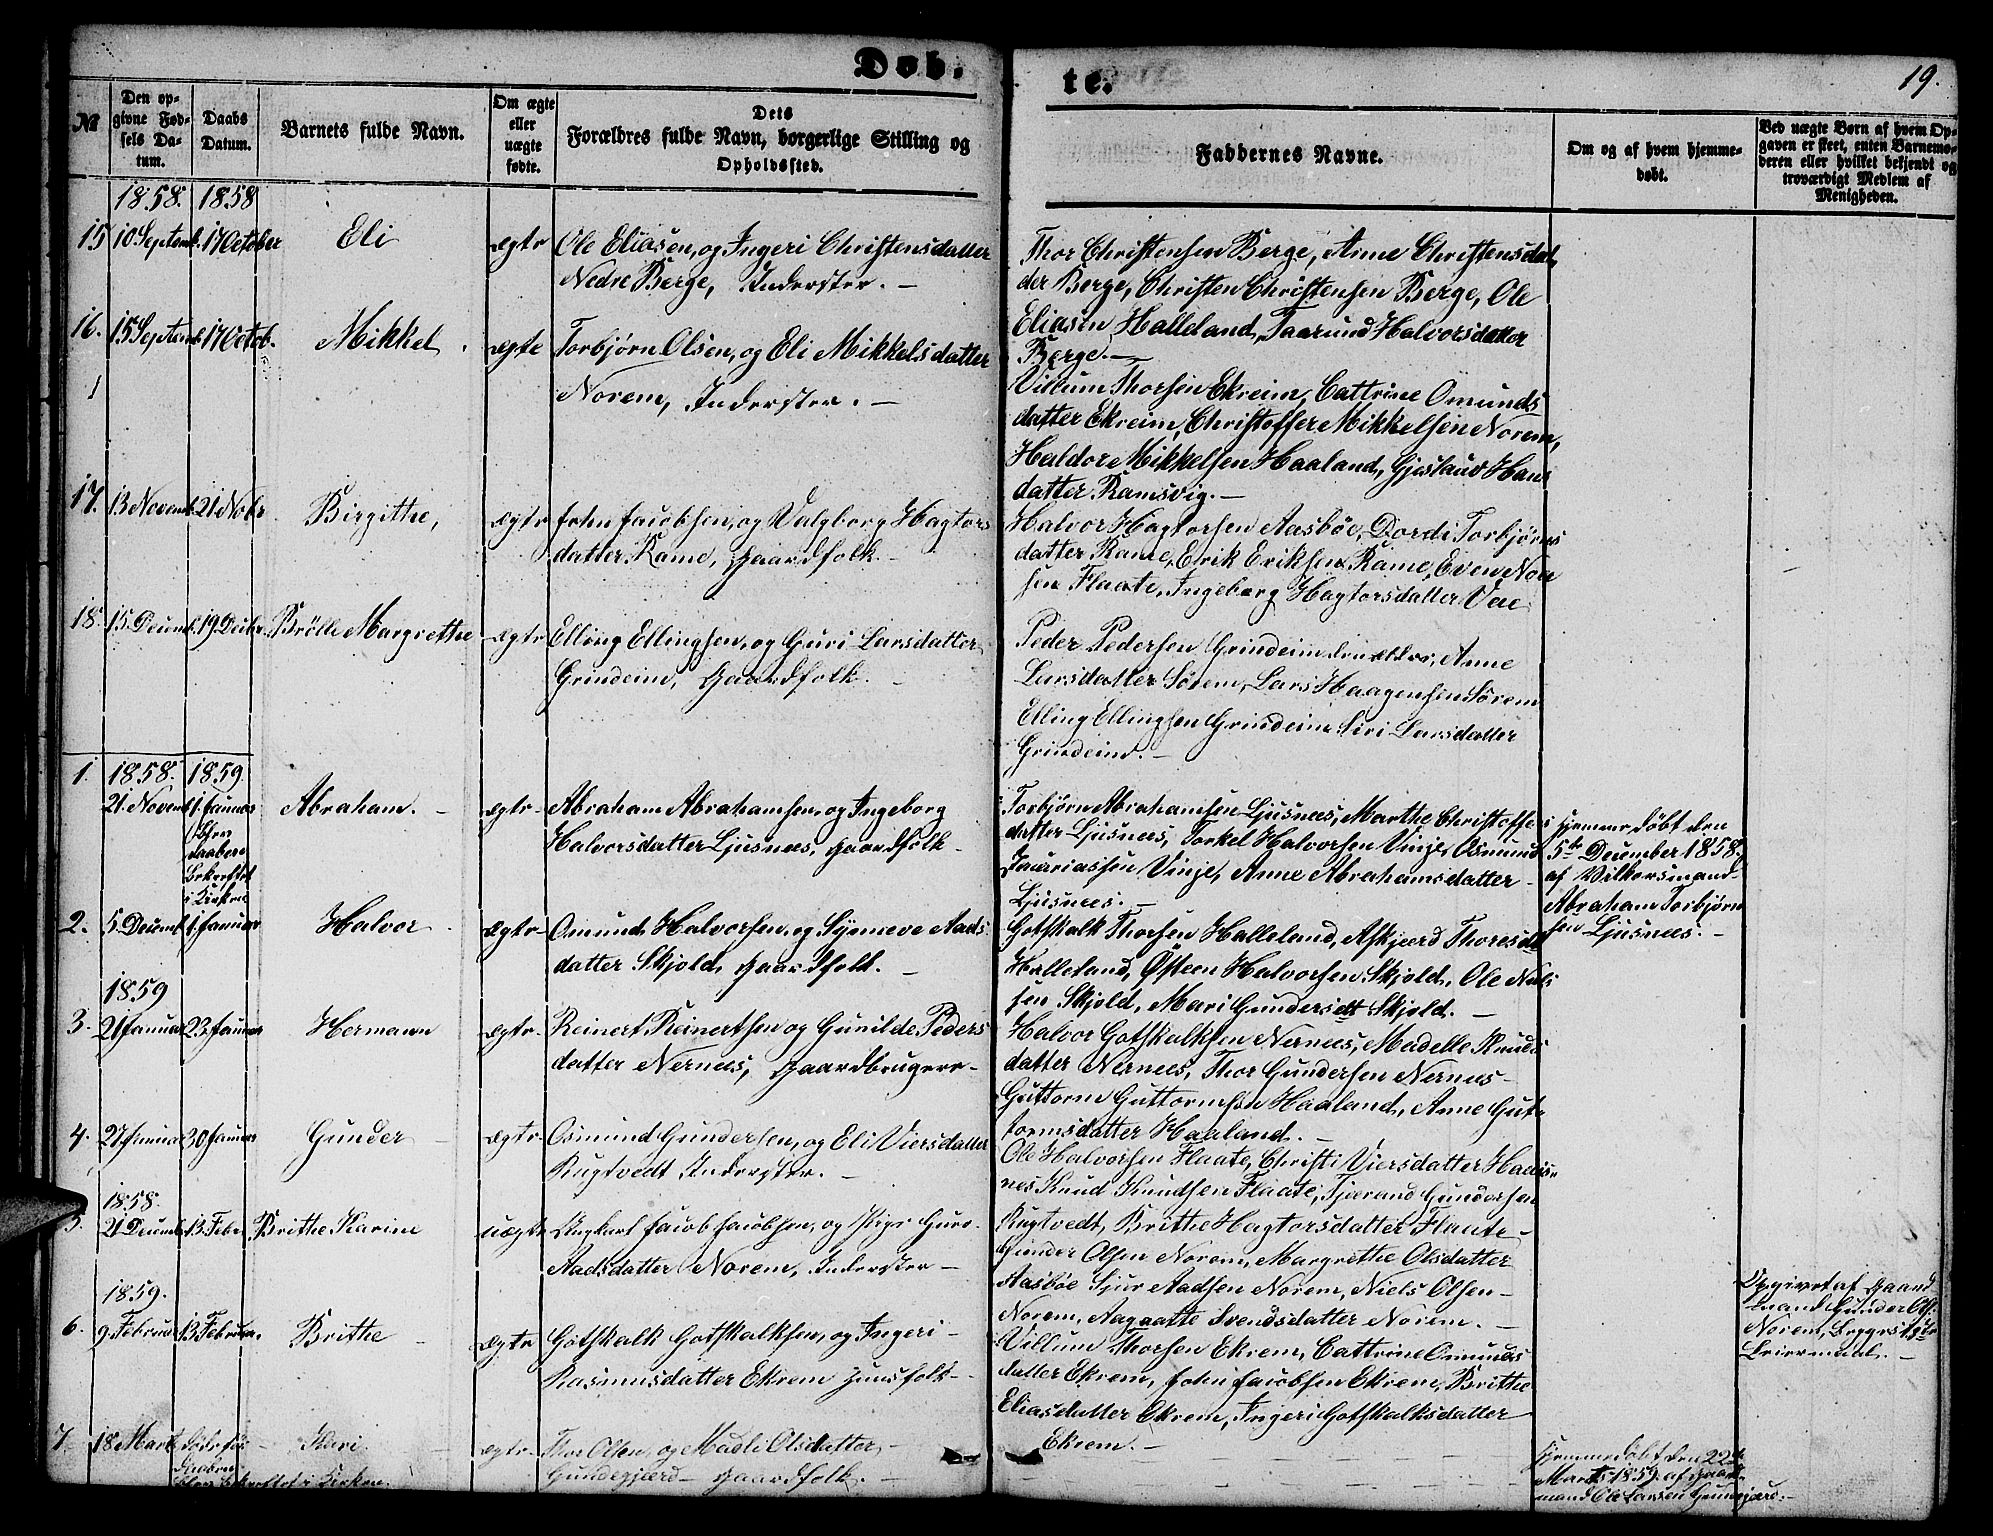 Døb.
te.
19.
No
Den op-
givne Fød-
sels Da-
tum.
Daabs
Datum.
Barnets fulde Navn.
Om ægte
eller
uægte
fødte.
Dets
Forældres fulde Navn, borgerlige Stilling og
Opholdssted.
Faddernes Navne.
Om og af hvem hjemme-
døbt.
Ved uægte Børn af hvem Op-
gaven er skeet, enten Barnemo-
deren eller hvilket bekjendt og
troværdigt Medlem af
Menigheden.
1858. 1858
15 10 Septemb. 17 October Eli ægte
Ole Eliasen, og Ingeri Christensdatter
Nedre Berge, Inderster. -
Thor Christensen Berge, Anne Christensdat
der Berge, Christen Christensen Berge, Ole
Eliasen Halleland, Taarund Halvorsdatter
Berge. -
16. 15 Septemb. 17 Octob. Mikkel ægte
Torbjørn Olsen, og Eli Mikkelsdatter
Norem, Inderster. -
Villum Thorsen Ekreim, Cattrine Omunds
datter Ekreim, Christoffer Mikkelsen Norem,
Haldor Mikkelsen Haaland, Gjeslaud Hans
datter Ramsvig. -
17. 13 Novemb. 21 Nobr Birgithe, ægte
John Jacobsen, og Valgborg Hagtors
datter Rame, Gaardfolk -
Halvor Hagtorsen Aasbøe, Dordi Torbjørns
datter Rame, Erik Eriksen Rame, Even Noe
sen Flaate, Ingeborg Hagtorsdatter Vee
18. 15 Decemb. 19 Decbr. Brølle Margrethe ægte
Elling Ellingsen, og Guri Larsdatter
Grindeim, Gaardfolk. -
Peder Pedersen Grindeim den eldre, Anne
Larsdatter Sørem, Lars Haagensen Sørem
Elling Ellingsen Grindeim Siri Larsdatter
Grindeim. -
1. 1858. 1859.
21. Novemb. 1. Januar Abraham. - ægte
daaben
bekræftet
i Kirken
Abraham Abrahamsen, og Ingeborg
Halvorsdatter Ljusnæs, Gaardfolk -
Torbjørn Abrahamsen Ljusnæs, Marthe Christoffers
datter Ljusnæs, Torkel Halvorsen Vinje, Osmund
Zacariassen Vinje, Anne Abrahamsdatter -
Ljusnæs. -
Hjemmedøbt den
5te December 1858.
af Vilkorsmand
Abraham Torbjørn
sen Ljusnæs. -
2. 5. Decemb. 1. Januar Halvor ægte
Omund Halvorsen, og Synneve Aads
datter Skjold, Gaardfolk. -
Gotskalk Thorsen Halleland, Askjærd Thoresdt
Halleland, Østeen Halvorsen Skjold, Ole Niels
sen Skjold, Mari Gundersdt Skjold. -
1859
3. 21 Januar 23 Januar Hermann ægte
Reinert Reinertsen og Gunilde Peders
datter Nernæs, Gaardbrugere -
Halvor Gotskalksen Nernæs, Madelle Knuds
datter Nernæs, Thor Gundersen Nernæs -
Guttorm Guttormsen Haaland, Anne Gut
tormsdatter Haaland. -
4. 27 Januar 30 Januar Gunder - ægte
Osmund Gundersen, og Eli Viersdatter
Rugtvedt Inderster. -
Ole Halvorsen Flaate, Christi Viersdatter
nes Knud Knudsen Flaate, Tjærand Gundersen
Rugtvedt, Brithe Hagtorsdatter Flaate -
1858.
5. 21 Decemb. 13. Febr. Brithe Karine uægte
Ungkarl Jacob Jacobsen, og Pige Guro
Aadsdatter Norem, Inderster -
Gunder Olsen Norem, Margrethe Olsdatter
Aasbøe Sjur Aadsen Norem, Niels Olsen -
Norem, Aagaatte Svendsdatter Norem. -
Opgivet af Gaard
mand Gunder Ols.
Norem, Begges 1ste
Leiermaal. -
1859.
6. 9 Februar 13 Februar. Brithe - ægte
Gotskalk Gotskalksen, og Ingeri -
Rasmusdatter Ekrem Huusfolk -
Villum Thorsen Ekrem, Cattrine Omunds
datter Ekrem, John Jacobsen Ekrem, Brithe
Eliasdatter Ekrem, Ingeri Gotskalksdatter
Ekrem. -
7. 18 Marts Kari ægte
Daaben
bekræftet i Kirken
Thor Olsen, og Madli Olsdatter -
Gundegjærd - Gaardfolk. -
Hjemmedøbt den 22de
Marts 1859. af Gaard
mand Ole Larsen Gunnegjærd. -